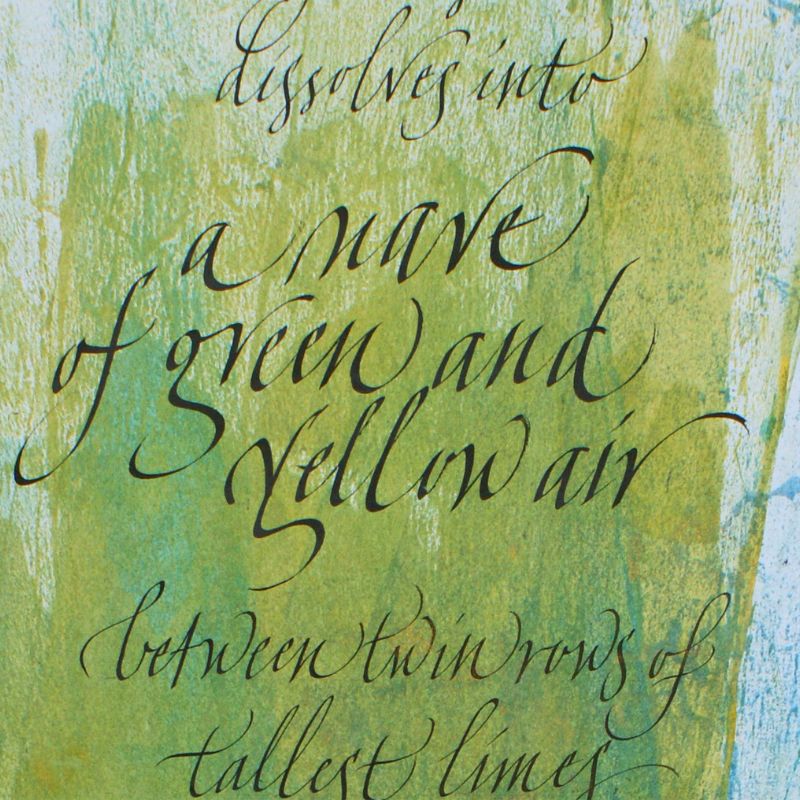 dissolves into
a nave
of green and
yellow air
between twin rows of
tallest limes